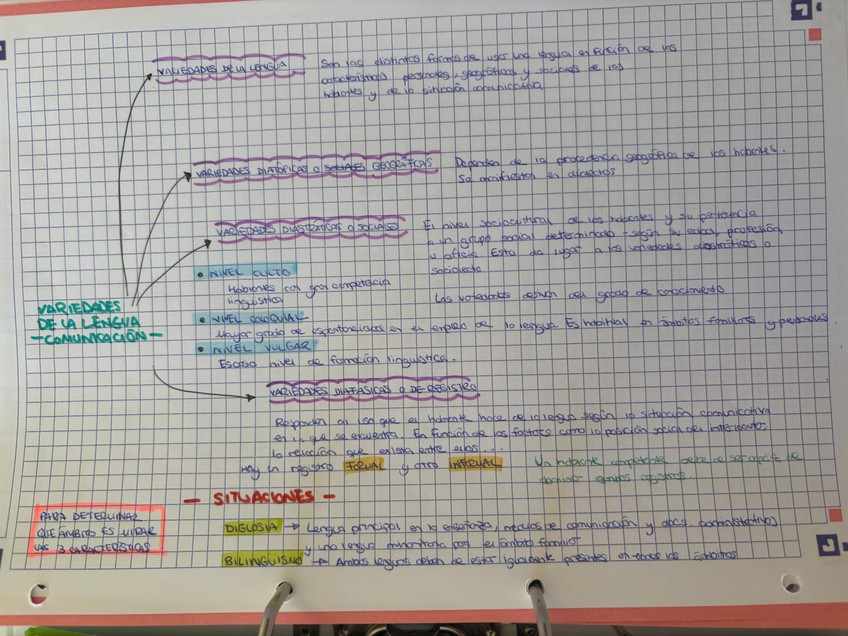 VARIEDADES DE LA LENGUA
Son las distintas formas de usar una lengua en función de las
características personales, geográficas y sociales de los
hablantes y de la situación comunicativa
VARIEDADES DIATÓPICAS O SOCIALES GEOGRÁFICAS
Dependen de la procedencia geográfica de los hablantes.
Se manifiestan en dialectos
VARIEDADES DIASTRÁTICAS O SOCIALES
El nivel sociocultural de los hablantes y su pertenencia
a un grupo social determinado según su edad, profesión
u oficio. Esto da lugar a las variedades diastráticas o
sociolecto
• NIVEL CULTO
Hablantes con gran competencia
lingüística
Las variedades del grado de conocimiento
• NIVEL COLOQUIAL
Mayor grado de espontaneidad en el empleo de la lengua. Es habitual en ámbitos familiares y personales
• NIVEL VULGAR
Escaso nivel de formación lingüística.
VARIEDADES
DE LA LENGUA
- COMUNICACIÓN -
VARIEDADES DIAFÁSICAS O DE REGISTRO
Responden al uso que el hablante hace de la lengua según la situación comunicativa
en la que se encuentra. En función de los factores como la posición social del interlocutor,
la relación que exista entre ellos...
Hay un registro FORMAL y otro INFORMAL
Un hablante competente debe de ser capaz de
dominar ambos registros.
- SITUACIONES -
PARA DETERMINAR
QUE ÁMBITO ES MIRAR
LAS 3 CARACTERÍSTICAS
DIGLOSIA → Lengua principal en la enseñanza, medios de comunicación y docs. administrativos
y una lengua minoritaria para el ámbito familiar
BILINGÜISMO → Ambas lenguas deben de estar igualmente presentes en todos los ámbitos